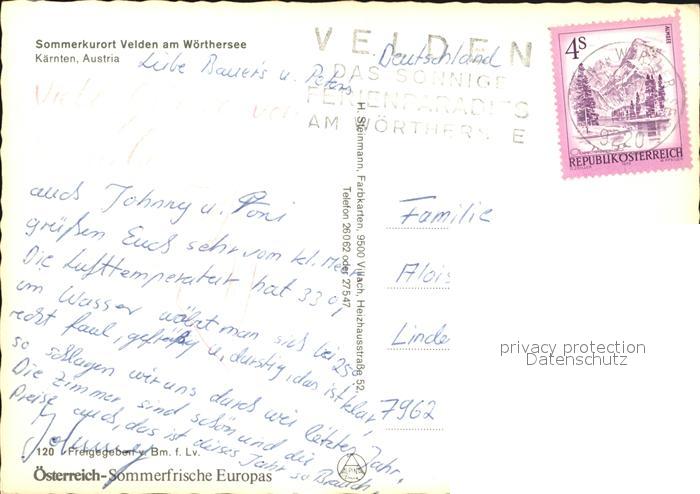 Sommerkurort Velden am Wörthersee
Kärnten, Austria
Liebe Bauer's u. Peters
Deutschland
VELDEN
DAS SONNIGE
FERIENPARADIES
AM WÖRTHERSEE
4S
ALMSEE
REPUBLIK ÖSTERREICH
9220
auch Johnny u. Toni
grüßen Euch sehr vom kl. Meer
Die Lufttemperatur hat 33°,
im Wasser wälzt man sich bei 25°
recht faul, gefräßig u. durstig, das ist klar,
so schlagen wir uns durch wie letztes Jahr.
Die Zimmer sind schön und die
Preise auch, das ist dieses Jahr so Brauch.
Johnny
H. Steinmann, Farbkarten, 9500 Villach, Heizhausstraße 52,
Telefon 26062 oder 27547
Familie
Alois
Linde
7962
privacy protection
Datenschutz
120 Freigegeben v. Bm. f. Lv.
Österreich-Sommerfrische Europas